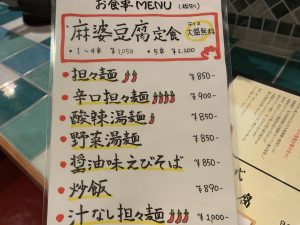 お食事MENU (税別)
麻婆豆腐定食 ライス大盛無料
・1～4辛 ¥1,050 ・5辛 ¥1,100
・担々麺 ¥850-
・辛口担々麺 ¥900-
・酸辣湯麺 ¥850-
野菜湯麺 ¥850-
・醤油味えびそば ¥850-
・炒飯 ¥890-
・汁なし担々麺 ¥1,000-